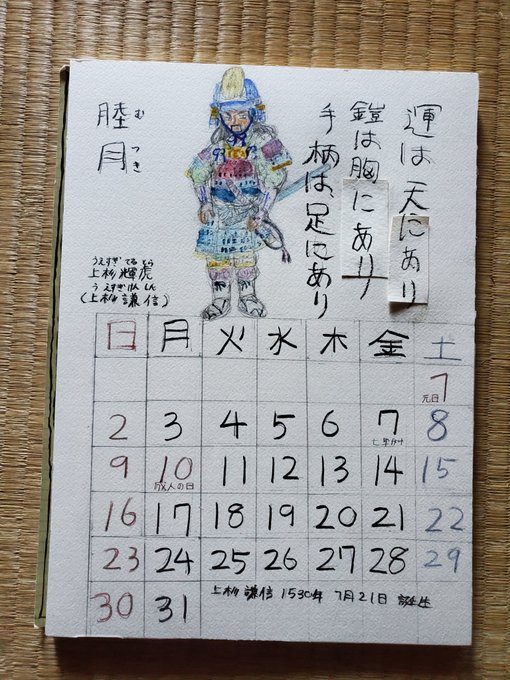 運は天にあり
鎧は胸にあり
手柄は、足にあり
むつき
睦月
うえすぎてるとら
上杉輝虎
うえすぎけんしん
(上杉謙信)
日 月 火 水 木 金 土
1
元日
2 3 4 5 6 7 8
9 10 11 12 13 14 15
成人の日
16 17 18 19 20 21 22
23 24 25 26 27 28 29
30 31
上杉謙信 1530年 1月21日 誕生